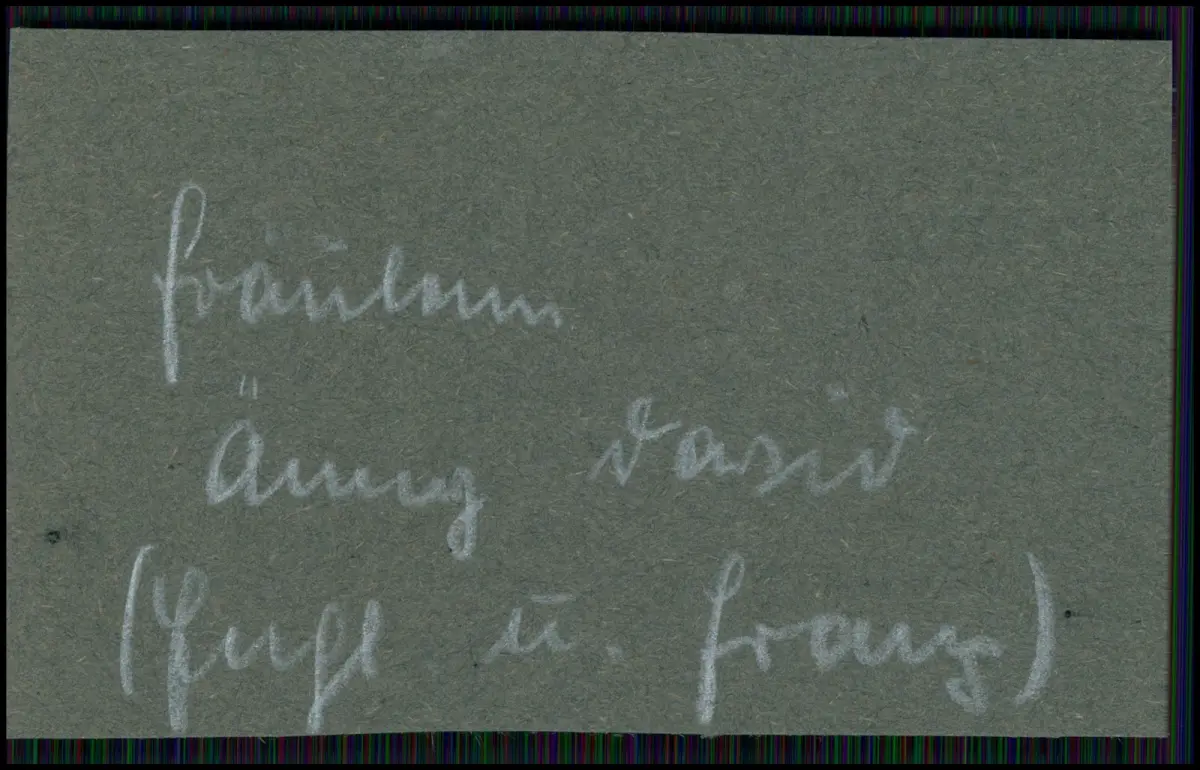 Fräulein
Änny David
(Engl. u. Franz)